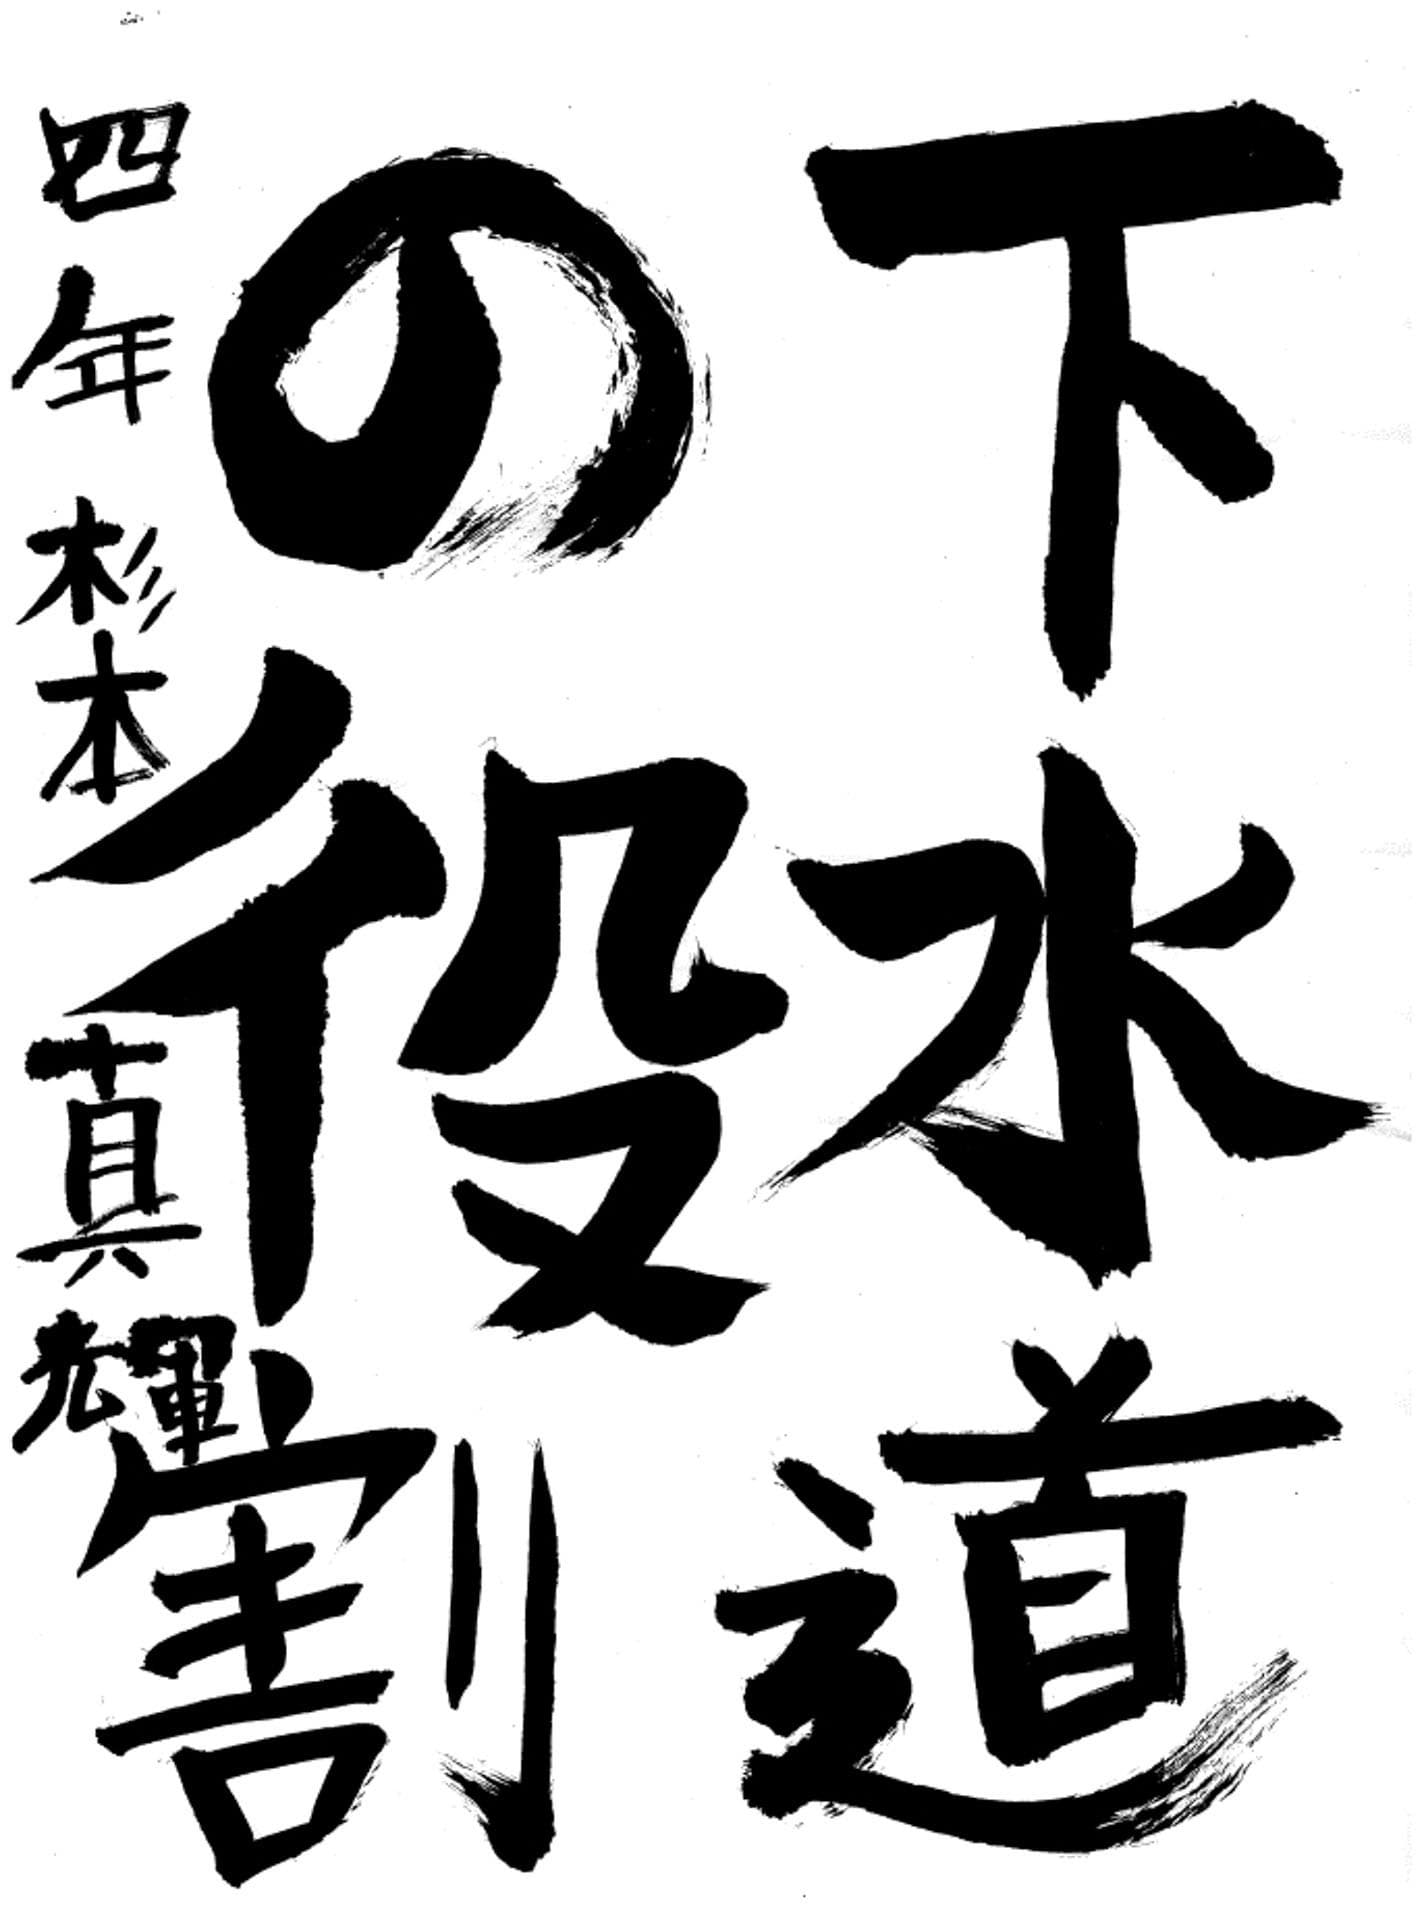 下水道
の役割
四年 杉本真輝